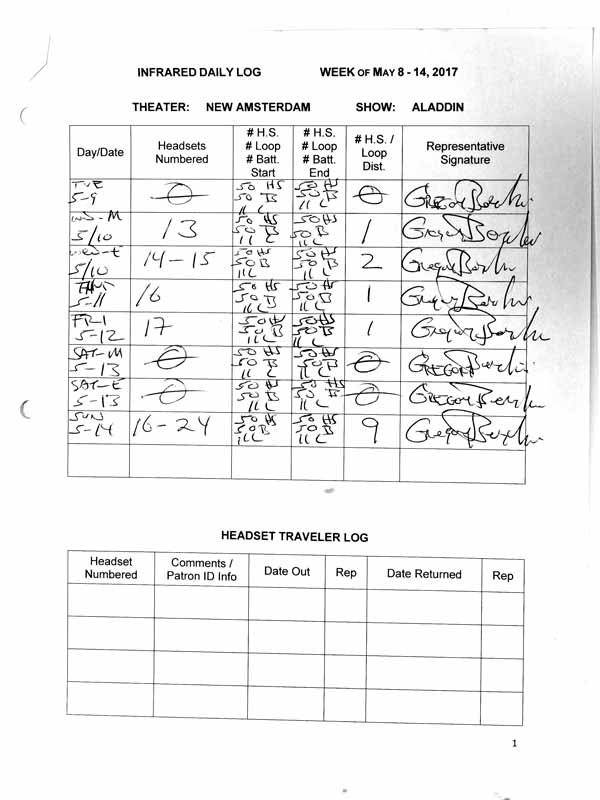 INFRARED DAILY LOG WEEK OF MAY 8 - 14, 2017
THEATER: NEW AMSTERDAM SHOW: ALADDIN
Day/Date
Headsets
Numbered
# H.S.
# Loop
# Batt.
Start
# H.S.
# Loop
# Batt.
End
# H.S. /
Loop
Dist.
Representative
Signature
TUE
5-9
0
50 HS
50 B
11 C
50 HS
50 B
11 C
0
Gregory
WD-M
5/10
13
50 HS
50 B
11 C
50 HS
50 B
11 C
1
Gregory
WED-E
5/10
14-15
50 HS
50 B
11 C
50 HS
50 B
11 C
2
Gregory
THU
5-11
16
50 HS
50 B
11 C
50 HS
50 B
11 C
1
Gregory
FRI
5-12
17
50 HS
50 B
11 C
50 HS
50 B
11 C
1
Gregory
SAT-M
5-13
0
50 HS
50 B
11 C
50 HS
50 B
11 C
0
Gregory
SAT-E
5-13
0
50 HS
50 B
11 C
50 HS
50 B
11 C
0
Gregory
SUN
5-14
16-24
50 HS
50 B
11 C
50 HS
50 B
11 C
9
Gregory
HEADSET TRAVELER LOG
Headset
Numbered
Comments /
Patron ID Info
Date Out
Rep
Date Returned
Rep
1